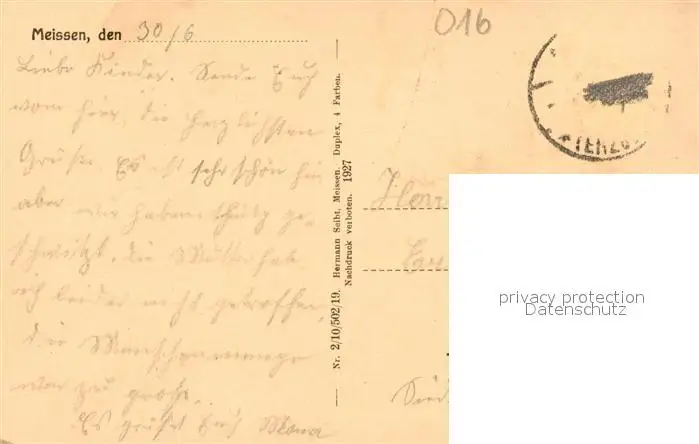 Meissen, den 30/6
016
Liebe Kinder. Sende Euch
vom hier die herzlichsten
Grüße. Es ist sehr schön hier
aber wir haben tüchtig ge-
schwitzt. die Mutter hab
ich leider nicht getroffen,
die Menschenmenge
war zu große.
Es grüßt Euch
Nr. 2/10/502/19. Hermann Seibt, Meissen. Duplex, 4 Farben.
Nachdruck verboten. 1927
privacy protection
Datenschutz